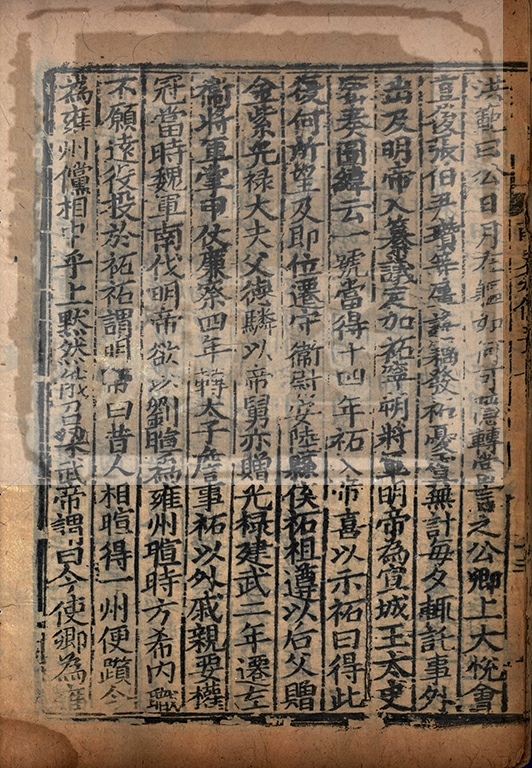 洪範曰公日月在軀如何可隱轉當言之公卿上大悅會
直後張伯尹瓚等屢謀竊發祏憂虞無計每夕輒託事外
出及明帝入纂議定加祏寧朔將軍明帝為宣城王太史
密奏圖緯云一號當得十四年祏入帝喜以示祏曰得此
復何所望及即位遷守衛尉安陸縣侯祏祖遵以后父贈
金紫光祿大夫父德驎以帝舅亦贈光祿建武二年遷左
衛將軍掌甲仗廉察四年轉太子詹事祏以外戚親要權
冠當時魏軍南伐明帝欲以劉暄為雍州暄時方希內職
不願遠役投於祏祏謂明帝曰昔人相暄得一州便躓今
為雍州儻相中乎上默然俄召梁武帝謂曰今使卿為雍